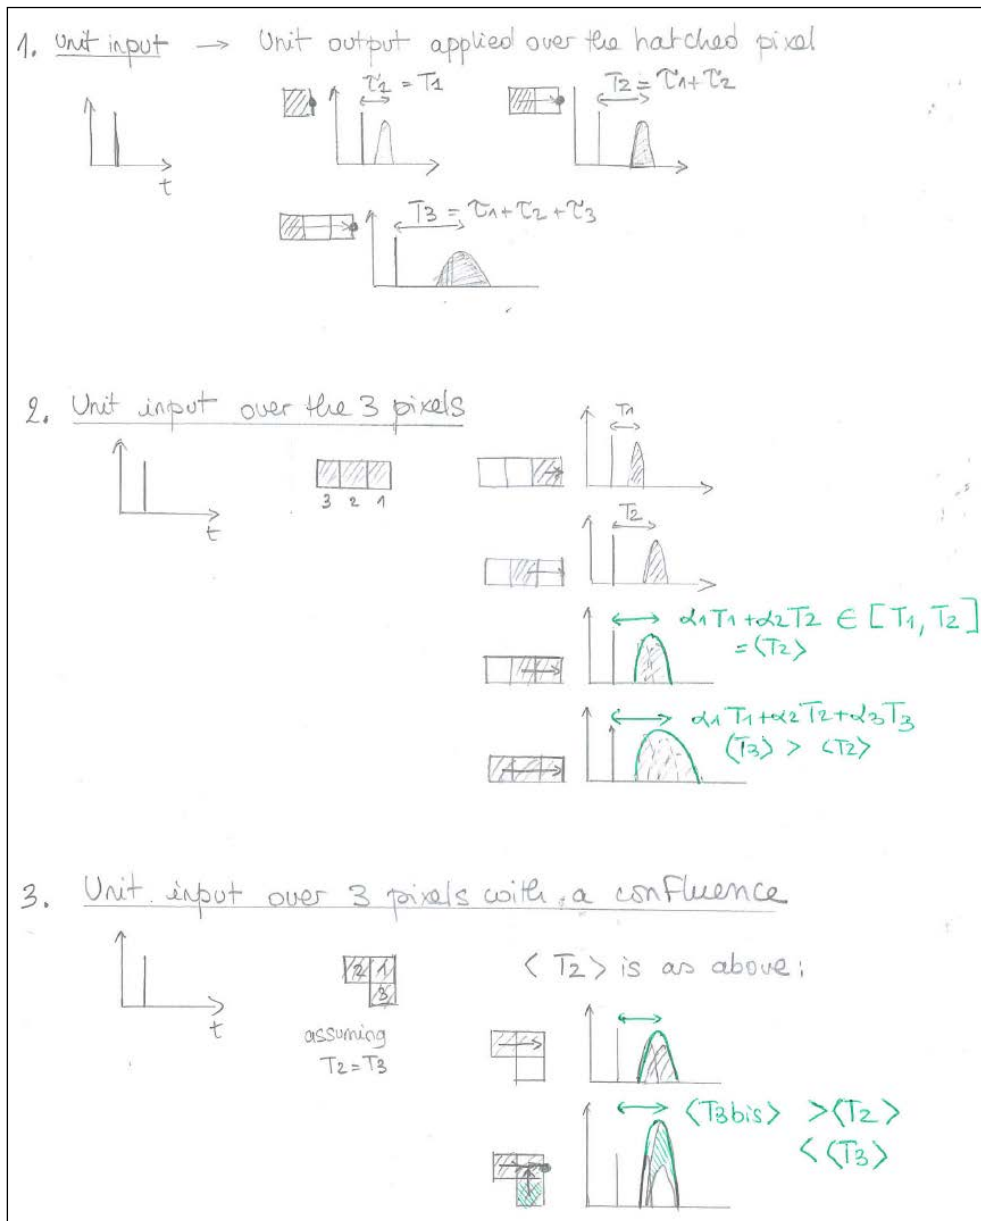 1. Unit input → Unit output applied over the hatched pixel
τ1 = T1
T2 = τ1+τ2
t
T3 = τ1+τ2+τ3
2. Unit input over the 3 pixels
T1
t
3 2 1
T2
α1T1+α2T2 ∈ [T1, T2]
= <T2>
α1T1+α2T2+α3T3
<T3> > <T2>
3. Unit input over 3 pixels with a confluence
2 1
3
t
<T2> is as above:
assuming
T2=T3
<T3bis> > <T2>
< <T3>